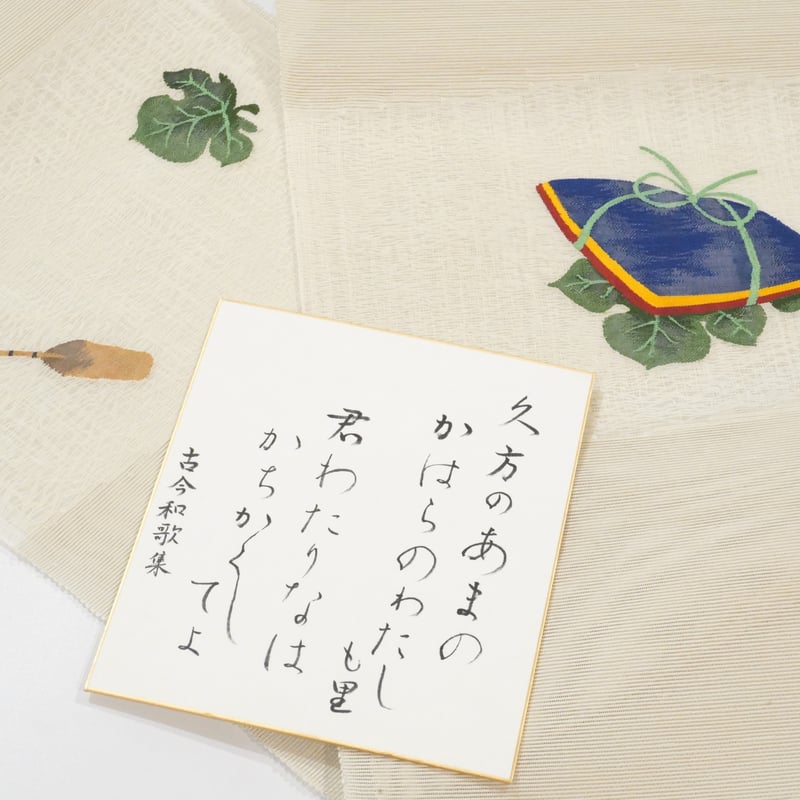 久方のあまの
かはらのわたし
も里
君わたりなは
かちかくし
てよ
古今和歌集